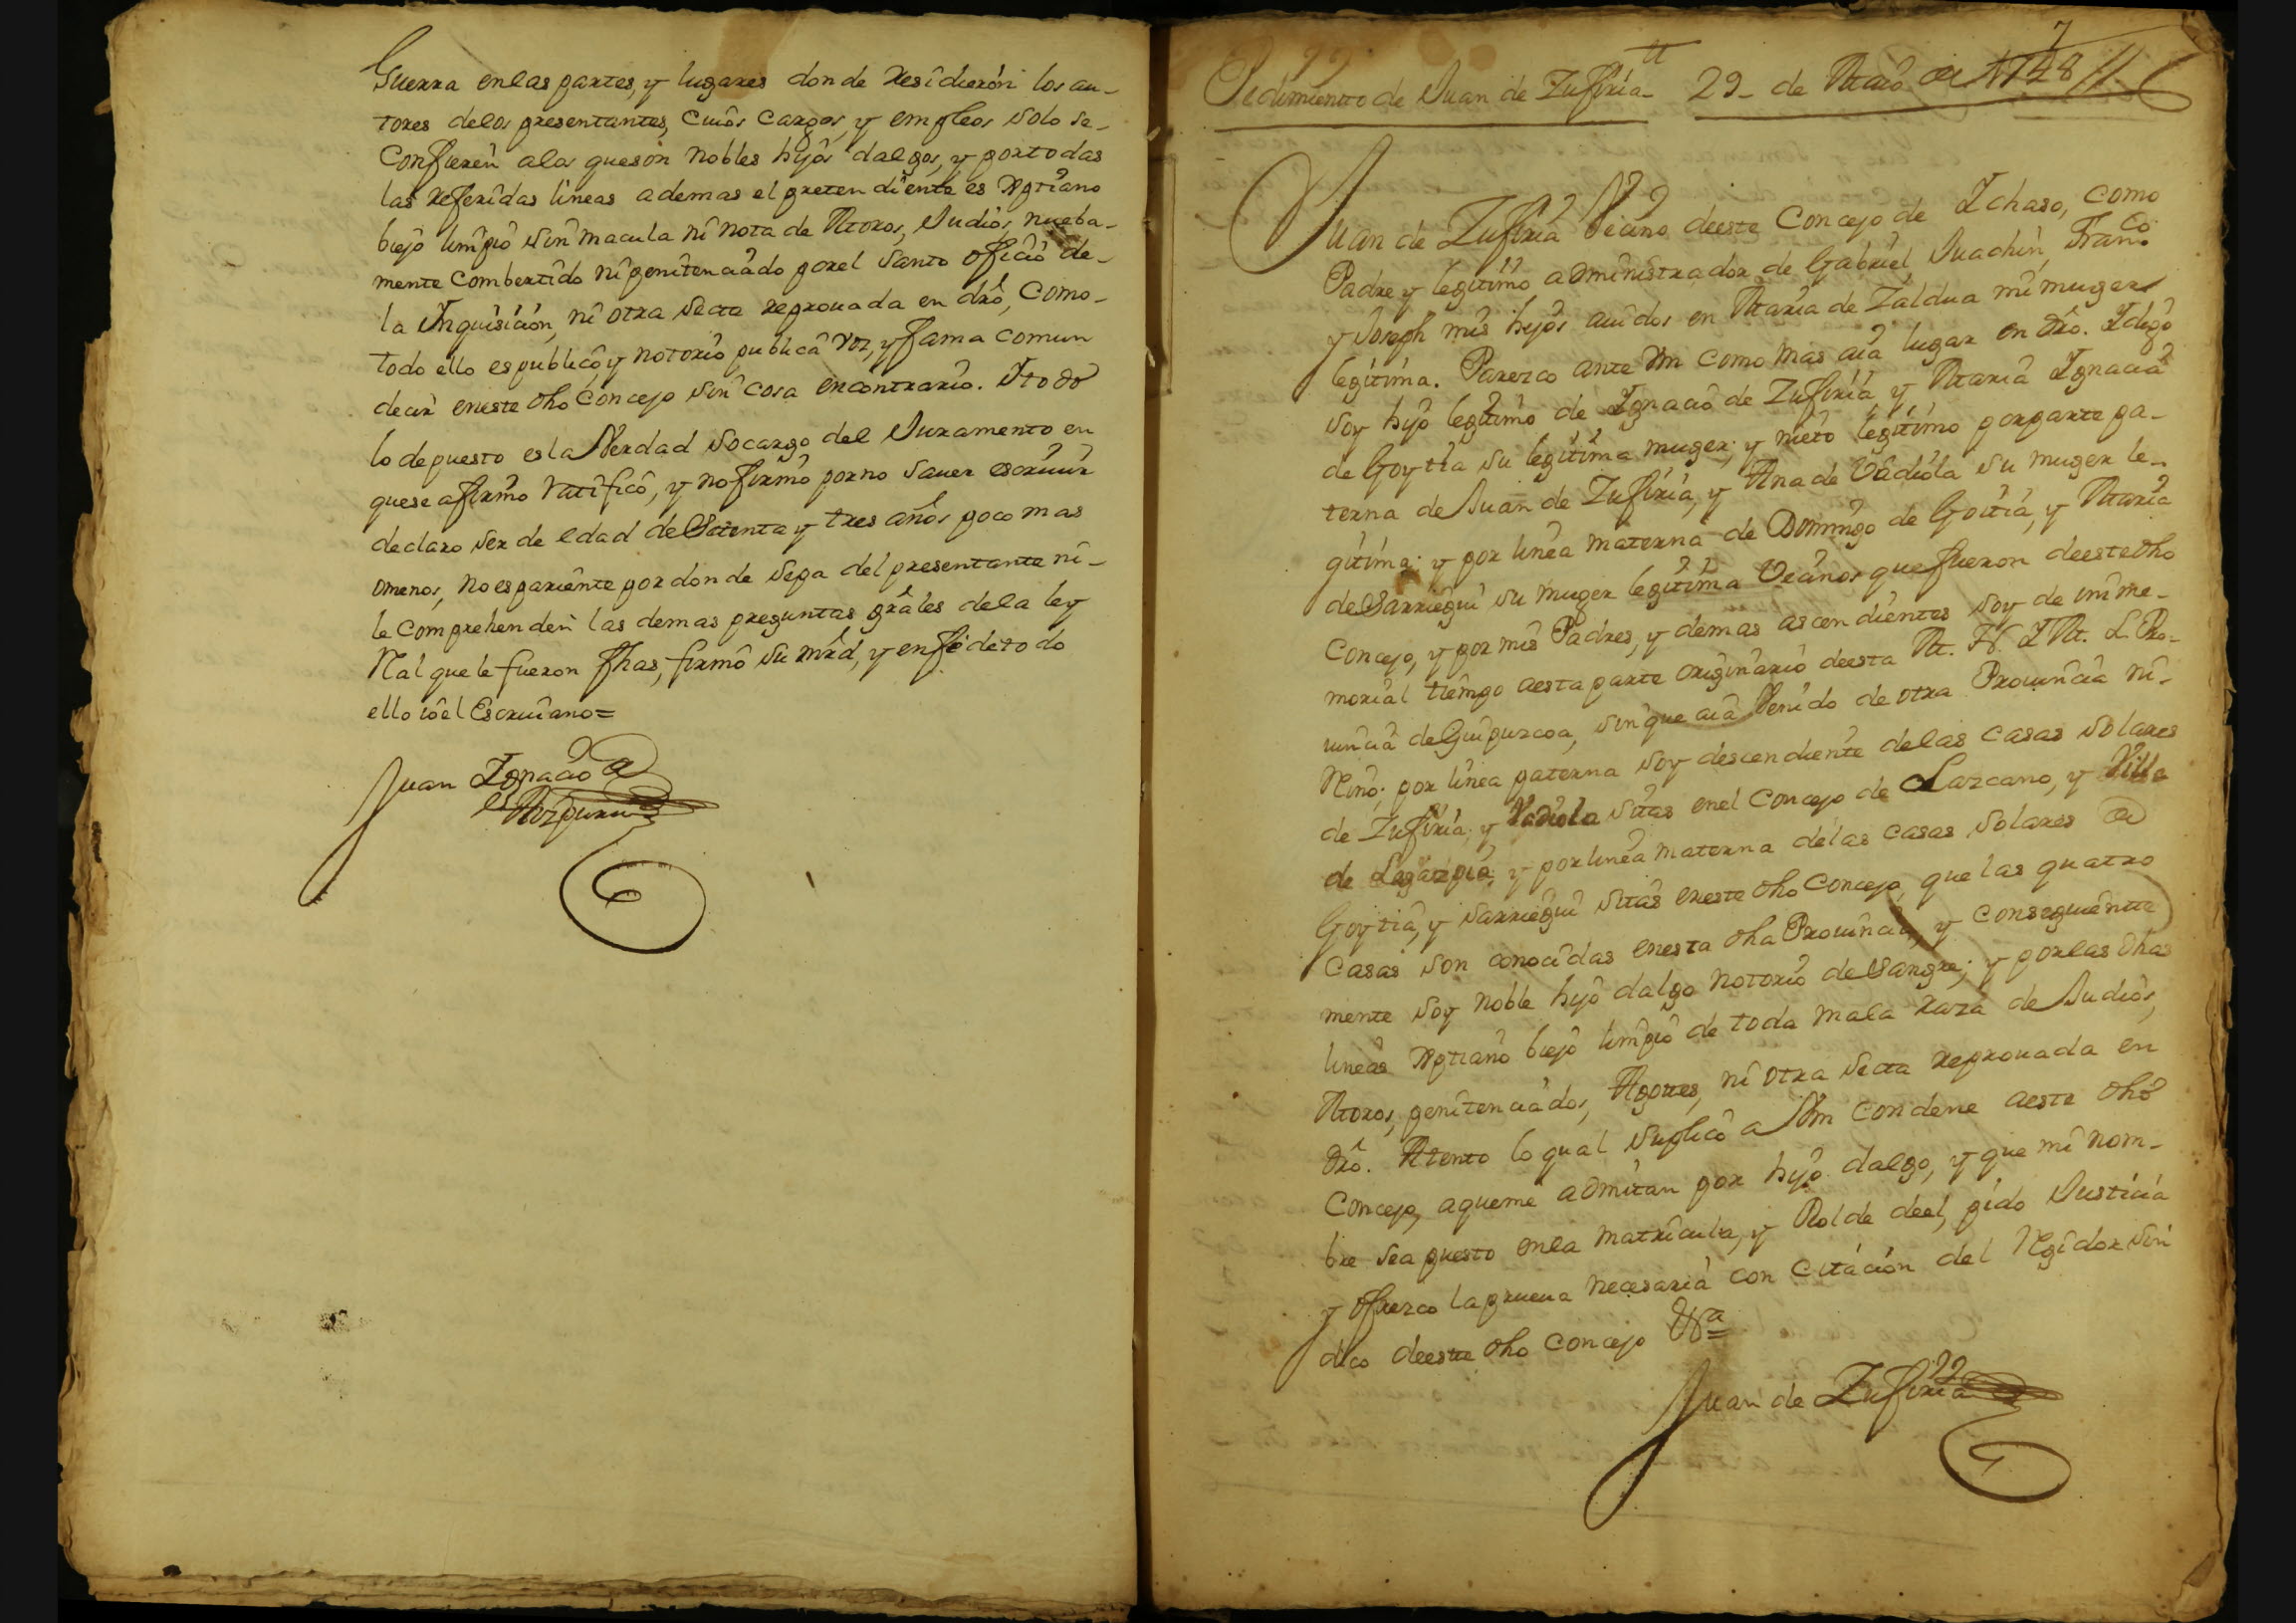 Guerra enlas partes, y lugares donde Residierón los au-
tores delos presentantes, Cuiôs Cargos, y empleos solo se-
Confierén alos queson Nobles hijôs dalgos, y portodas
las Referidas lineas ademas el pretendiente es Xptiano
biejô limpiô sin macula ni nota de Moros, Judiôs, nueba-
mente Combertido ni penitenciado porel Santo oficiô de-
la Inquisición, ni otra Secta reprouada en drô, Como-
todo ello espublicô y notoriô publica voz, y fama comun
decir eneste dho Concejo sin cosa encontrario. Ytodô
lo depuesto esla Verdad socargo del Juramento en
quese afirmo Ratificô, y nofirmô porno Sauer escriuir
declaro ser de edad deSetenta y tres años poco mas
omenos, noespariente pordonde Sepa delpresentante ni-
le Comprehenden las demas preguntas grâles dela ley
Ral que le fueron fhas, firmô Su mrd, y enfé detodo
ello iôel Escriuano=
Juan Ignaciô de
Pedimientode Juan de Zufiria 29- de Maiô de 1748
7
Juan de Zufiria Vecino deeste Concejo de Ichaso, Como
Padre y legitimo administrador de Gabriel, Juachin, Franco
y Joseph mis hijôs auidos en Maria de Zaldua mi muger
legitima. Parezco ante Vm como mas aiâ lugar en drô. Idigo
soy hijo legitimo de Ignaciô de Zufiria, y Maria Ignacia
de Goytia su legitima muger, y nieto legitimo porparte pa-
terna de Juan de Zufiria, y Ana de Vadiola su muger le-
gitima; y por linea materna de Domingo de Goitia, y Maria
deSarriegui su muger legitima Vecinos que fueron deeste dho
Concejo, y por mis Padres, y demas ascendientes soy de imme-
morial tiempo aesta parte originariô deesta M. N. Y M. L. Pro-
uincia deGuipuzcoa, sin que aiâ Venido de otra Prouincia ni-
Reino; por linea paterna soy descendiente delas casas solares
de Zufiria, y Vadiola sitas enel Concejo de Lazcano, y Villa
de Legazpia, y porlinea materna delas casas solares de
Goytia, y Sarriegui sitas eneste dho Concejo, que las quatro
Casas son conocidas enesta dha Prouincia, y Conseguientte
mente soy noble hijô dalgo notoriô deSangre; y porlas dhas
lineas Xptianô biejô limpiô de toda mala raza de Judiôs,
Moros, penitenciados, Agottes, ni otra Secta reprouada en
drô. Atento lo qual Suplicô a Vm Condene aeste dhô
Concejo, aqueme admitan por hijo dalgo, y que mi nom-
bre sea puesto enla matricula, y Rolde deel, pido Justicia
y ofrezco laprueua necesariâ con citación del Regidor Sin
dico deeste dho Concejo
Juan de Zufiria